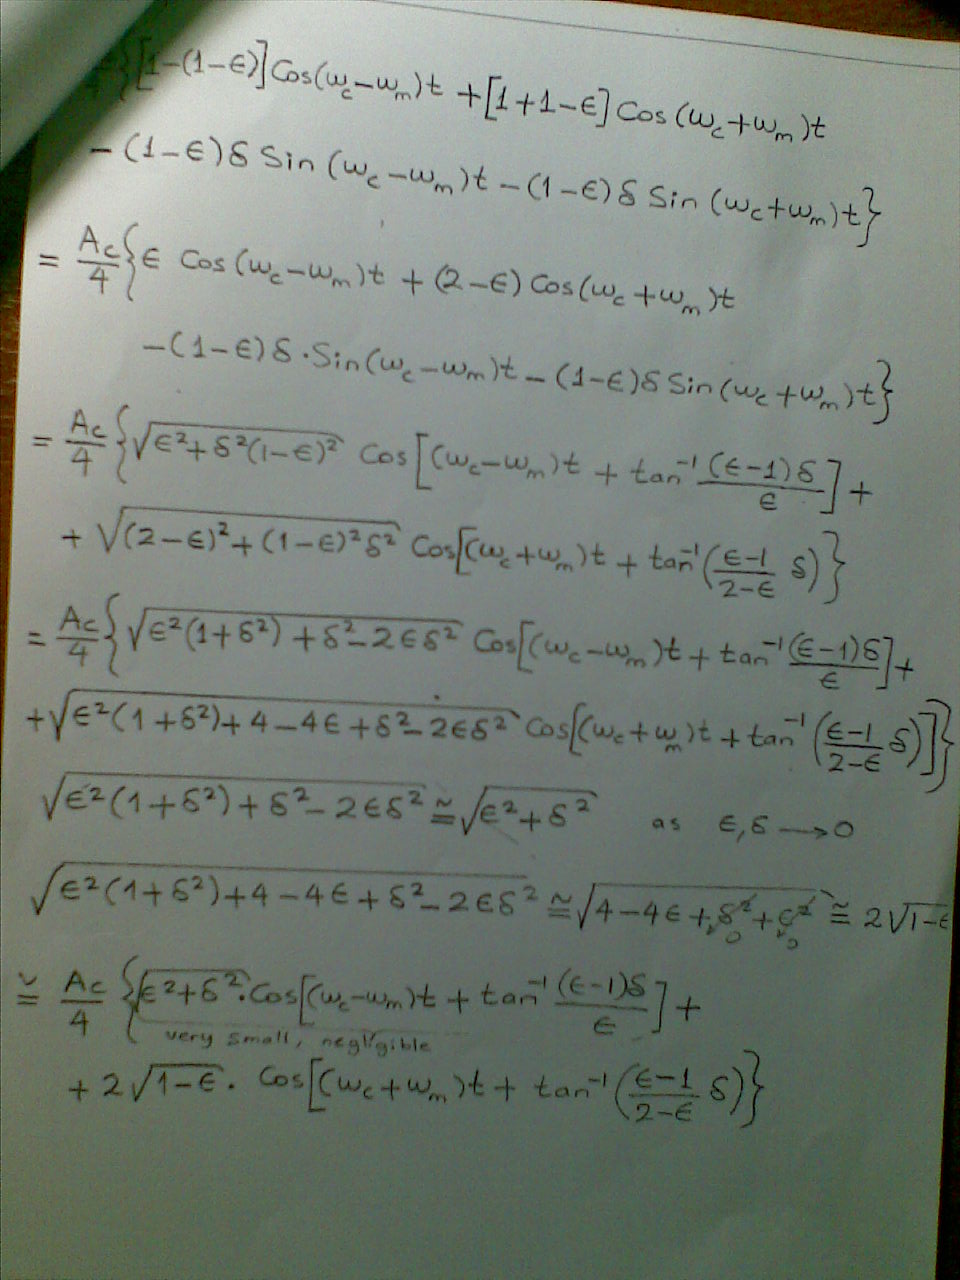 {[1-(1-ϵ)]Cos(ω_c-ω_m)t +[1+1-ϵ] Cos(ω_c+ω_m)t
-(1-ϵ)δ Sin (ω_c-ω_m)t -(1-ϵ)δ Sin (ω_c+ω_m)t}
= A_c/4 {ϵ Cos(ω_c-ω_m)t + (2-ϵ) Cos(ω_c+ω_m)t
-(1-ϵ)δ·Sin(ω_c-ω_m)t - (1-ϵ)δ Sin(ω_c+ω_m)t}
= A_c/4 {√(ϵ²+δ²(1-ϵ)²) Cos[(ω_c-ω_m)t + tan⁻¹ (ϵ-1)δ/ϵ] +
+ √((2-ϵ)²+(1-ϵ)²δ²) Cos[(ω_c+ω_m)t + tan⁻¹(ϵ-1/2-ϵ δ)}
= A_c/4 {√(ϵ²(1+δ²)+δ²-2ϵδ²) Cos[(ω_c-ω_m)t + tan⁻¹ (ϵ-1)δ/ϵ] +
+√(ϵ²(1+δ²)+4-4ϵ+δ²-2ϵδ²) Cos[(ω_c+ω_m)t + tan⁻¹(ϵ-1/2-ϵ δ)]}
√(ϵ²(1+δ²)+δ²-2ϵδ²) ≅ √(ϵ²+δ²) as ϵ,δ → 0
√(ϵ²(1+δ²)+4-4ϵ+δ²-2ϵδ²) ≅ √(4-4ϵ+δ²+ϵ²) ≅ 2√(1-ϵ)
0 0
≅ A_c/4 {√(ϵ²+δ²)·Cos[(ω_c-ω_m)t + tan⁻¹ (ϵ-1)δ/ϵ] +
very small, negligible
+ 2√(1-ϵ)· Cos[(ω_c+ω_m)t + tan⁻¹(ϵ-1/2-ϵ δ)}